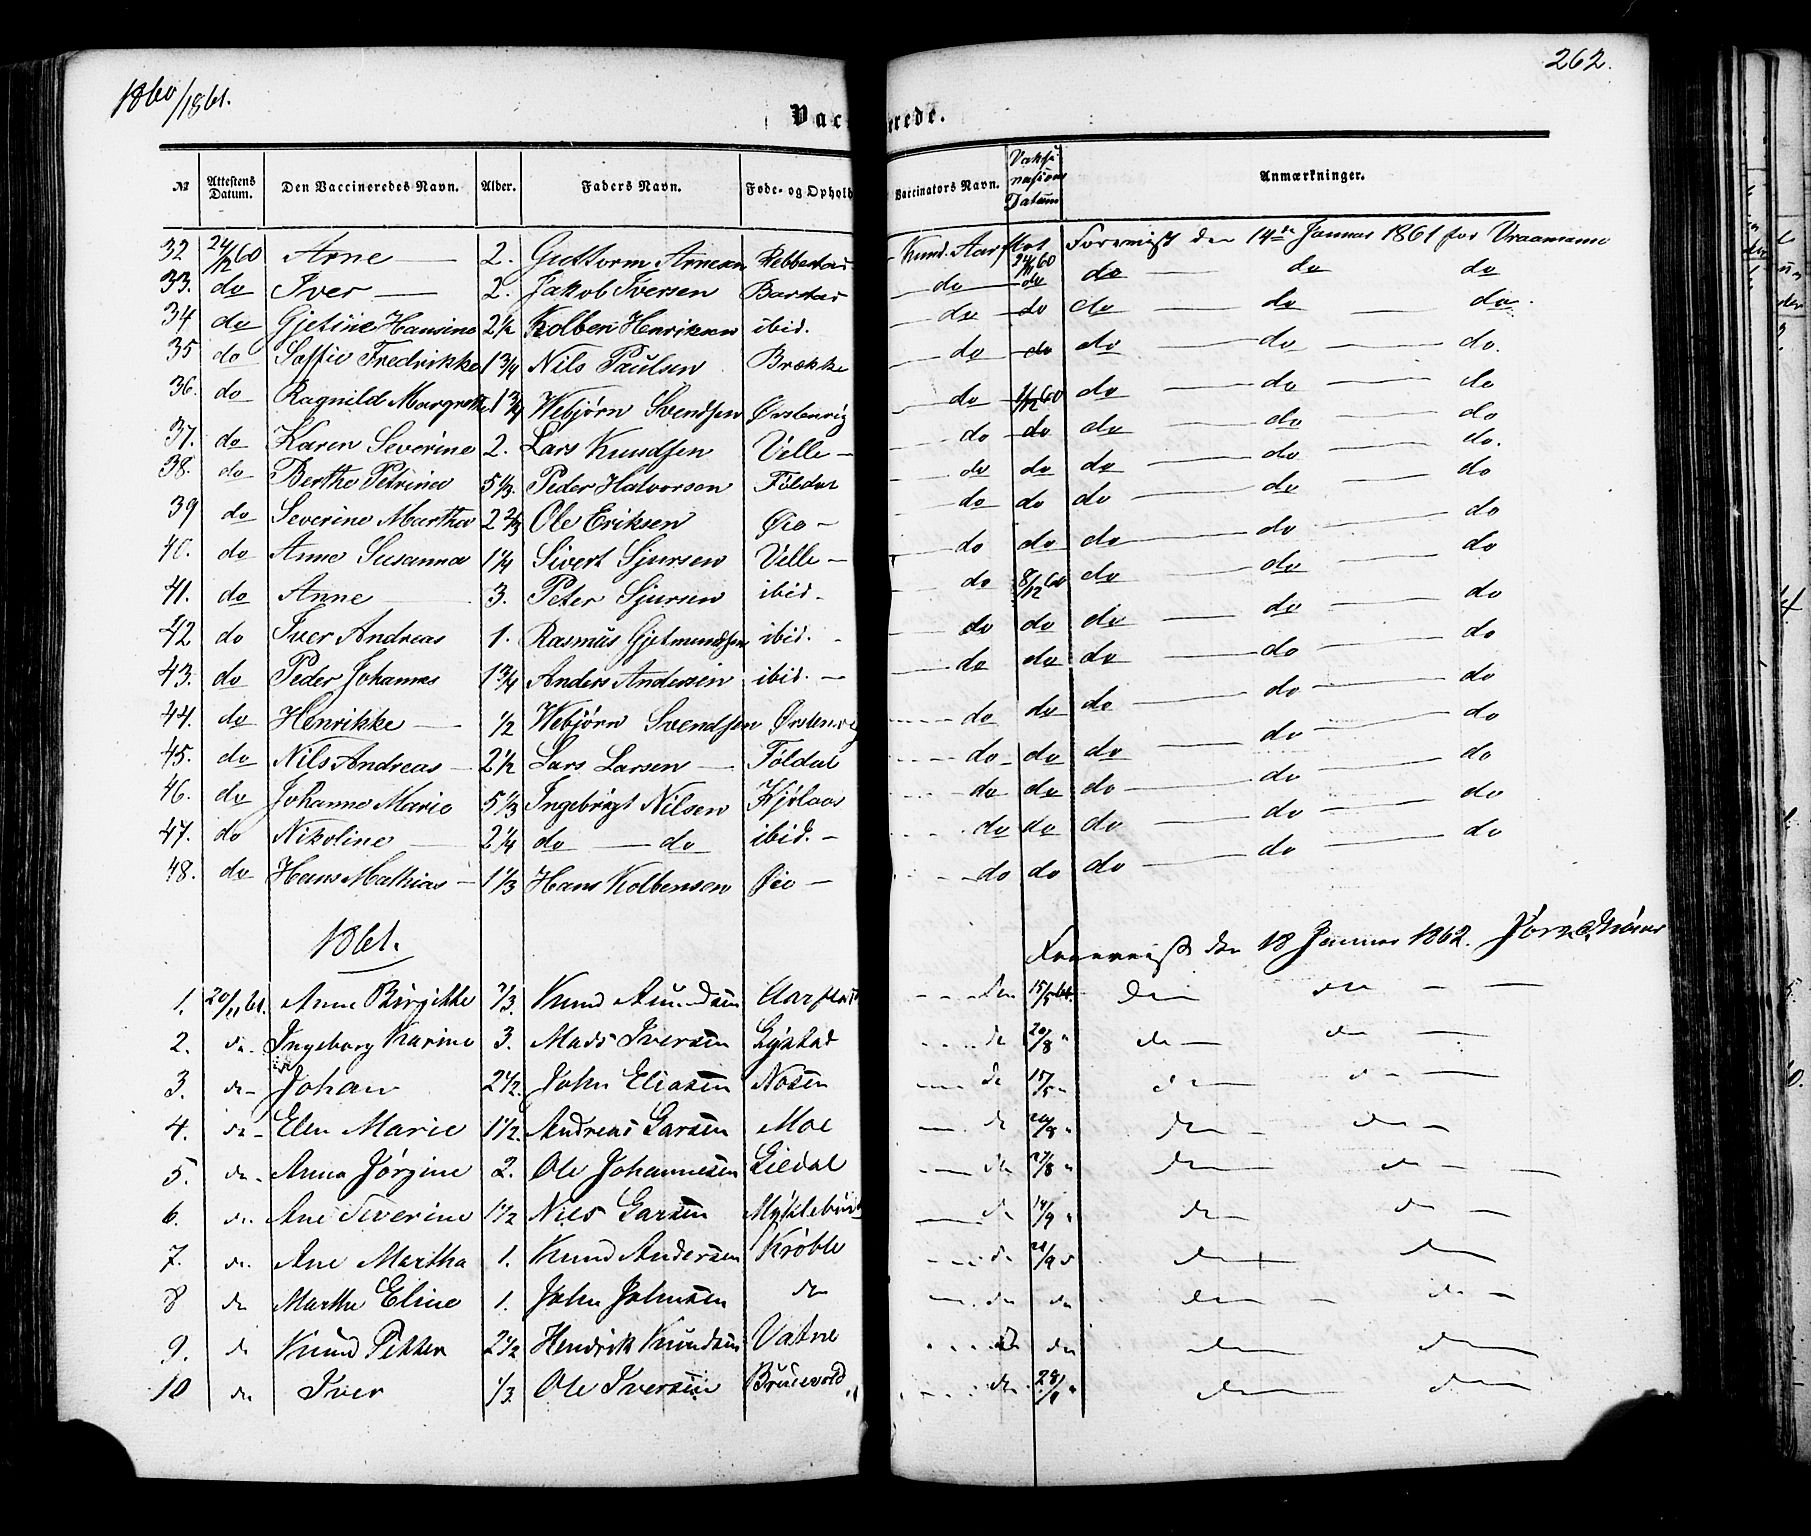 1860/1861.
262.
Vac erede.
№ Attestens Datum. Den Vaccineredes Navn. Alder. Faders Navn. Føde- og Ophold Vaccinators Navn. Vaksinasions Datum Anmærkninger.
32 24/12 60 Arne — 2. Guttorm Arnesen Rebbestad — Knud Aarflot 24/11 60 Foreviist den 14de Januar 1861 for
33. do Iver — 2. Jakob Iversen Barstad — do — do do — do do
34 do Gjetine Hansine 2 1/2 Kolben Henriksen ibid. — do — do do — do — do.
35 do Saffie Fredrikke 1 3/4 Nils Paulsen Brække — do — do do — do — do.
36. do Ragnild Margrethe 1 3/4 Webjørn Svendsen Ørstenvig — do 1/12 60 do — do — do
37. do Karen Severine 2. Lars Knudsen Velle — — do do do — do — do
38. do Berthe Petrine 5 1/3. Peder Halvorsen Føldal — do do do — do — do.
39 do Severine Martha 2 2/3 Ole Eriksen Øie — — do do do — do — do
40. do Anne Susanna 1 1/4 Sivert Sjursen Velle — — do do do — do — do
41. do Anne — 3. Peter Sjursen ibid. — do 8/12 60 do — do — do
42 do Iver Andreas 1. Rasmus Gjetmundsen ibid. — do do do — do — do
43. do Peder Johannes 1 3/4 Anders Andersen ibid. — — do do do — do — do
44. do Henrikke — 1/2 Webjørn Svendsen Ørstenvig — do do do — do — do
45. do Nils Andreas — 2 1/2 Lars Larsen — Føldal — do do do — do — do
46. do Johanne Marie 5 1/3 Ingebrigt Nilsen Kjølaas — do do do — do — do
47. do Nikoline — 2 1/4 do — do ibid. — — do do do — do — do
48. do Hans Mathias — 1 1/3 Hans Kolbensen Øie — — do do do — do — do
1861.
Foreviist den 18 Januar 1862.
1. 20/11 61. Anne Birgitte 2/3. Knud Amundsen Aarflot — do 15/5 61. do do — —
2. do Ingeborg Karine 3. Mads Iversen Lystad — do 20/8 " do — do —
3. do — Johan 2 1/2. John Eliasen Nosen — do 15/5 " do — do —
4. do — Elen Marie 1 1/2. Andreas Larsen Moe — do 20/8 " do — do —
5. do — Anna Jørgine 2. Ole Johannesen Liedal — do 27/8 " do — do — —
6. do Ane Severine 1 1/2 Niels Larsen Myklebust — do 14/9 " do — do —
7. do. Ane Martha 1. Knud Andersen Krøble — do 21/9 " do — do —
8 do Marthe Eline 1. John Johnsen do — do do do — do —
9. do Knud Petter 2 1/2 Hendrik Knudsen Vatne — do do do — do —
10 do Iver 1/3. Ole Iversen Bruevold — do. 28/9 " do — do —